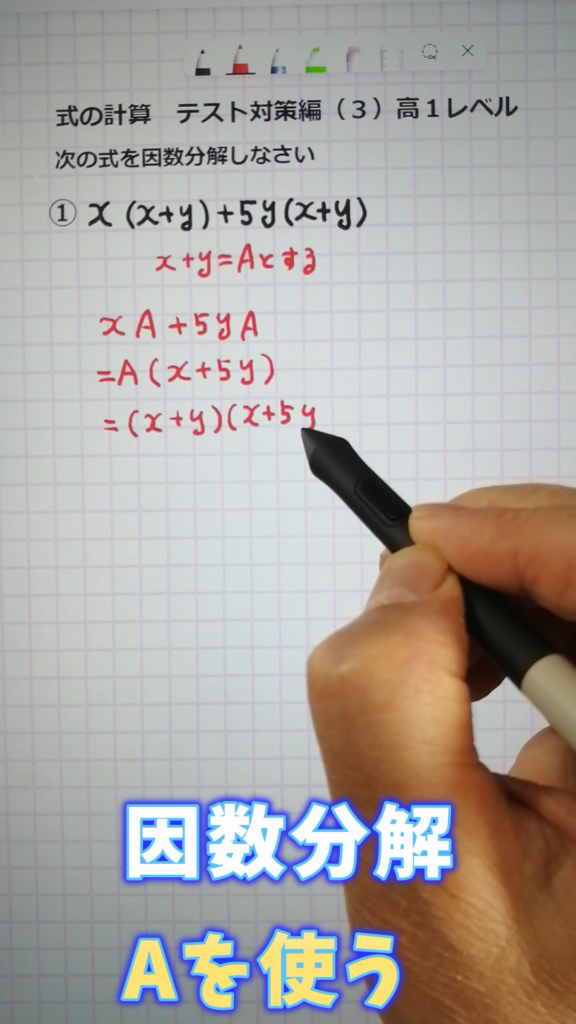 式の計算 テスト対策編（３）高１レベル
次の式を因数分解しなさい
① x (x+y)+5y(x+y)
x+y=Aとする
xA+5yA
=A(x+5y)
=(x+y)(x+5y
因数分解
Aを使う